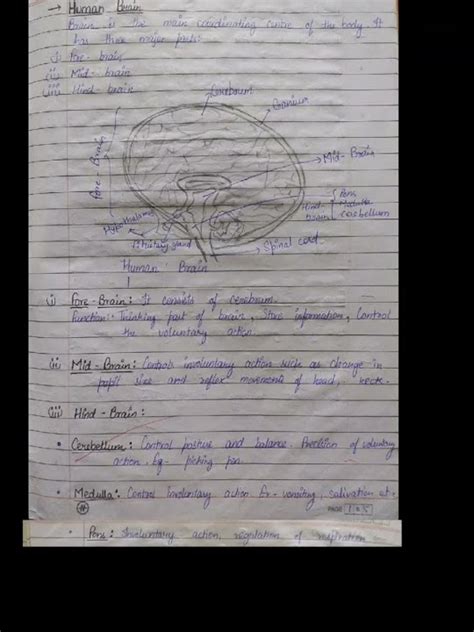 → Human Brain
Brain is the main coordinating centre of the body. It
has three major parts:
i) Fore-brain
(ii) Mid-brain
(iii) Hind-brain
Cerebrum
Cranium
Fore-Brain
Mid-Brain
Hind-brain
Pons
Medulla
Cerebellum
Hypothalamus
Pituitary gland
Spinal cord
Human Brain
(i) Fore-Brain: It consists of cerebrum.
Function:- Thinking part of brain, Store information, Control
the voluntary action.
(ii) Mid-Brain: Controls involuntary action such as change in
pupil size and reflex movements of head, neck.
(iii) Hind-Brain:
• Cerebellum: Control posture and balance. Precision of voluntary
action. Eg- picking pen.
• Medulla: Control involuntary action Ex- vomiting, salivation etc.
PAGE
• Pons: Involuntary action, regulation of respiration